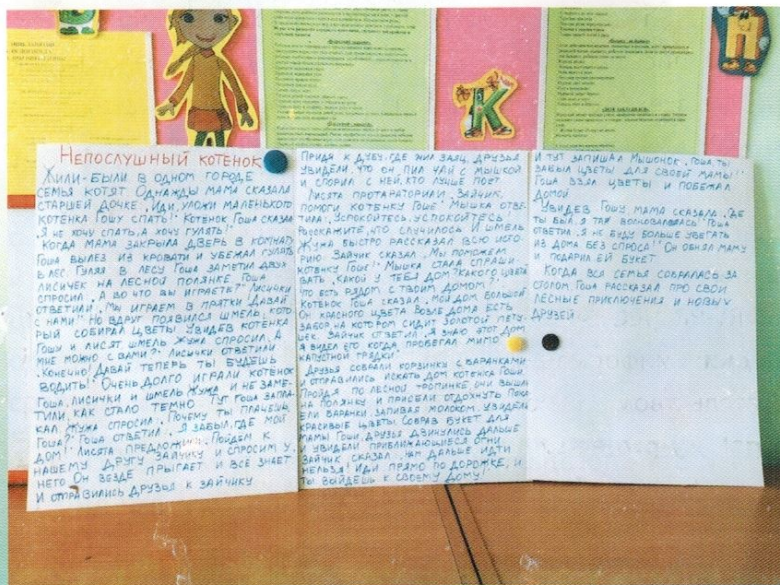 К
П
НЕПОСЛУШНЫЙ КОТЕНОК
ЖИЛИ-БЫЛИ В ОДНОМ ГОРОДЕ
СЕМЬЯ КОТЯТ. ОДНАЖДЫ МАМА СКАЗАЛА
СТАРШЕЙ ДОЧКЕ. „ИДИ, УЛОЖИ МАЛЕНЬКОГО
КОТЕНКА ГОШУ СПАТЬ!" КОТЕНОК ГОША СКАЗАЛ
„Я НЕ ХОЧУ СПАТЬ, А ХОЧУ ГУЛЯТЬ!"
КОГДА МАМА ЗАКРЫЛА ДВЕРЬ В КОМНАТУ
ГОША ВЫЛЕЗ ИЗ КРОВАТИ И УБЕЖАЛ ГУЛЯТЬ
В ЛЕС. ГУЛЯЯ В ЛЕСУ ГОША ЗАМЕТИЛ ДВУХ
ЛИСИЧЕК НА ЛЕСНОЙ ПОЛЯНКЕ. ГОША
СПРОСИЛ. „А ВО ЧТО ВЫ ИГРАЕТЕ?" ЛИСИЧКИ
ОТВЕТИЛИ. „МЫ ИГРАЕМ В ПРЯТКИ. ДАВАЙ
С НАМИ!" НО ВДРУГ ПОЯВИЛСЯ ШМЕЛЬ, КОТО-
РЫЙ СОБИРАЛ ЦВЕТЫ. УВИДЕВ КОТЕНКА
ГОШУ И ЛИСЯТ ШМЕЛЬ ЖУЖА СПРОСИЛ. „А
МНЕ МОЖНО С ВАМИ?" ЛИСИЧКИ ОТВЕТИЛИ
„КОНЕЧНО! ДАВАЙ ТЕПЕРЬ ТЫ БУДЕШЬ
ВОДИТЬ!" ОЧЕНЬ ДОЛГО ИГРАЛИ КОТЕНОК
ГОША, ЛИСИЧКИ И ШМЕЛЬ ЖУЖА И НЕ ЗАМЕ-
ТИЛИ, КАК СТАЛО ТЕМНО. ТУТ ГОША ЗАПЛА-
КАЛ. ЖУЖА СПРОСИЛ. „ПОЧЕМУ ТЫ ПЛАЧЕШЬ,
ГОША?" ГОША ОТВЕТИЛ. „Я ЗАБЫЛ, ГДЕ МОЙ
ДОМ!" ЛИСЯТА ПРЕДЛОЖИЛИ. „ПОЙДЕМ К
НАШЕМУ ДРУГУ ЗАЙЧИКУ И СПРОСИМ У
НЕГО. ОН ВЕЗДЕ ПРЫГАЕТ И ВСЕ ЗНАЕТ
И ОТПРАВИЛИСЬ ДРУЗЬЯ К ЗАЙЧИКУ
ПРИДЯ К ДУБУ, ГДЕ ЖИЛ ЗАЯЦ, ДРУЗЬЯ
УВИДЕЛИ, ЧТО ОН ПИЛ ЧАЙ С МЫШКОЙ
И СПОРИЛ С НЕЙ, КТО ЛУЧШЕ ПОЕТ.
ЛИСЯТА ПРОТАРАТОРИЛИ. „ЗАЙЧИК,
ПОМОГИ КОТЕНКУ ГОШЕ" МЫШКА ОТВЕ-
ТИЛА. „УСПОКОЙТЕСЬ, УСПОКОЙТЕСЬ!
РАССКАЖИТЕ, ЧТО СЛУЧИЛОСЬ И ШМЕЛЬ
ЖУЖА БЫСТРО РАССКАЗАЛ ВСЮ ИСТО-
РИЮ. ЗАЙЧИК СКАЗАЛ. „МЫ ПОМОЖЕМ
КОТЕНКУ ГОШЕ!" МЫШКА СТАЛА СПРАШИ-
ВАТЬ. „КАКОЙ У ТЕБЯ ДОМ? КАКОГО ЦВЕТА
ЧТО ЕСТЬ РЯДОМ С ТВОИМ ДОМОМ?".
КОТЕНОК ГОША СКАЗАЛ. „МОЙ ДОМ БОЛЬШОЙ
ОН КРАСНОГО ЦВЕТА. ВОЗЛЕ ДОМА ЕСТЬ
ЗАБОР, НА КОТОРОМ СИДИТ ЗОЛОТОЙ ПЕТУ-
ШЕК. ЗАЙЧИК ОТВЕТИЛ. „Я ЗНАЮ ЭТОТ ДОМ
Я ВИДЕЛ ЕГО КОГДА ПРОБЕГАЛ МИМО
КАПУСТНОЙ ГРЯДКИ"
ДРУЗЬЯ СОБРАЛИ КОРЗИНКИ С БАРАНКАМИ
И ОТПРАВИЛИСЬ ИСКАТЬ ДОМ КОТЕНКА ГОШИ.
ПРОЙДЯ ПО ЛЕСНОЙ ТРОПИНКЕ ОНИ ВЫШЛИ
НА ПОЛЯНКУ И ПРИСЕЛИ ОТДОХНУТЬ. ПОКА
ЕЛИ БАРАНКИ, ЗАПИВАЯ МОЛОКОМ, УВИДЕЛИ
КРАСИВЫЕ ЦВЕТЫ. СОБРАВ БУКЕТ ДЛЯ
МАМЫ ГОШИ, ДРУЗЬЯ ДВИНУЛИСЬ ДАЛЬШЕ
И УВИДЕЛИ ПРИБЛИЖАЮЩИЕСЯ ОГНИ
ЗАЙЧИК СКАЗАЛ. „НАМ ДАЛЬШЕ ИДТИ
НЕЛЬЗЯ! ИДИ ПРЯМО ПО ДОРОЖКЕ, И
ТЫ ВЫЙДЕШЬ К СВОЕМУ ДОМУ!
И ТУТ ЗАПИЩАЛ МЫШОНОК. „ГОША, ТЫ
ЗАБЫЛ ЦВЕТЫ ДЛЯ СВОЕЙ МАМЫ!"
ГОША ВЗЯЛ ЦВЕТЫ И ПОБЕЖАЛ
ДОМОЙ
УВИДЕВ ГОШУ, МАМА СКАЗАЛА. „ГДЕ
ТЫ БЫЛ. Я ТАК ВОЛНОВАЛАСЬ" ГОША
ОТВЕТИЛ. „Я НЕ БУДУ БОЛЬШЕ УБЕГАТЬ
ИЗ ДОМА БЕЗ СПРОСА!" ОН ОБНЯЛ МАМУ
И ПОДАРИЛ ЕЙ БУКЕТ
КОГДА ВСЯ СЕМЬЯ СОБРАЛАСЬ ЗА
СТОЛОМ ГОША РАССКАЗАЛ ПРО СВОИ
ЛЕСНЫЕ ПРИКЛЮЧЕНИЯ И НОВЫХ
ДРУЗЕЙ